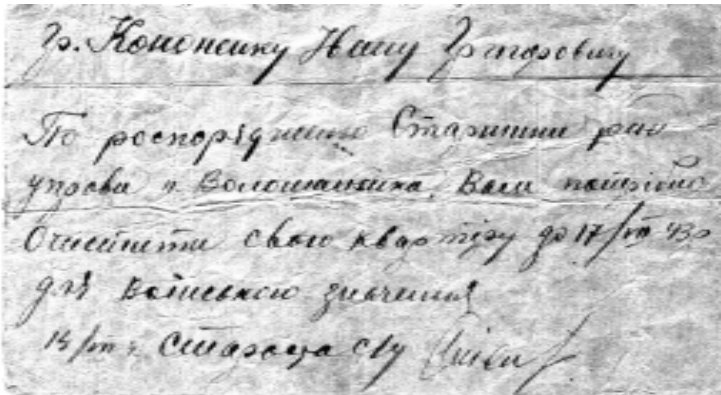 гр. Кононенку Івану Григоровичу
По роспорядженню Старшини рай
управи п. Волошаненка, Вам потрібно
Очистити свою квартіру до 17/VIII 43 р
для військово значення
14/VIII Староста с/у